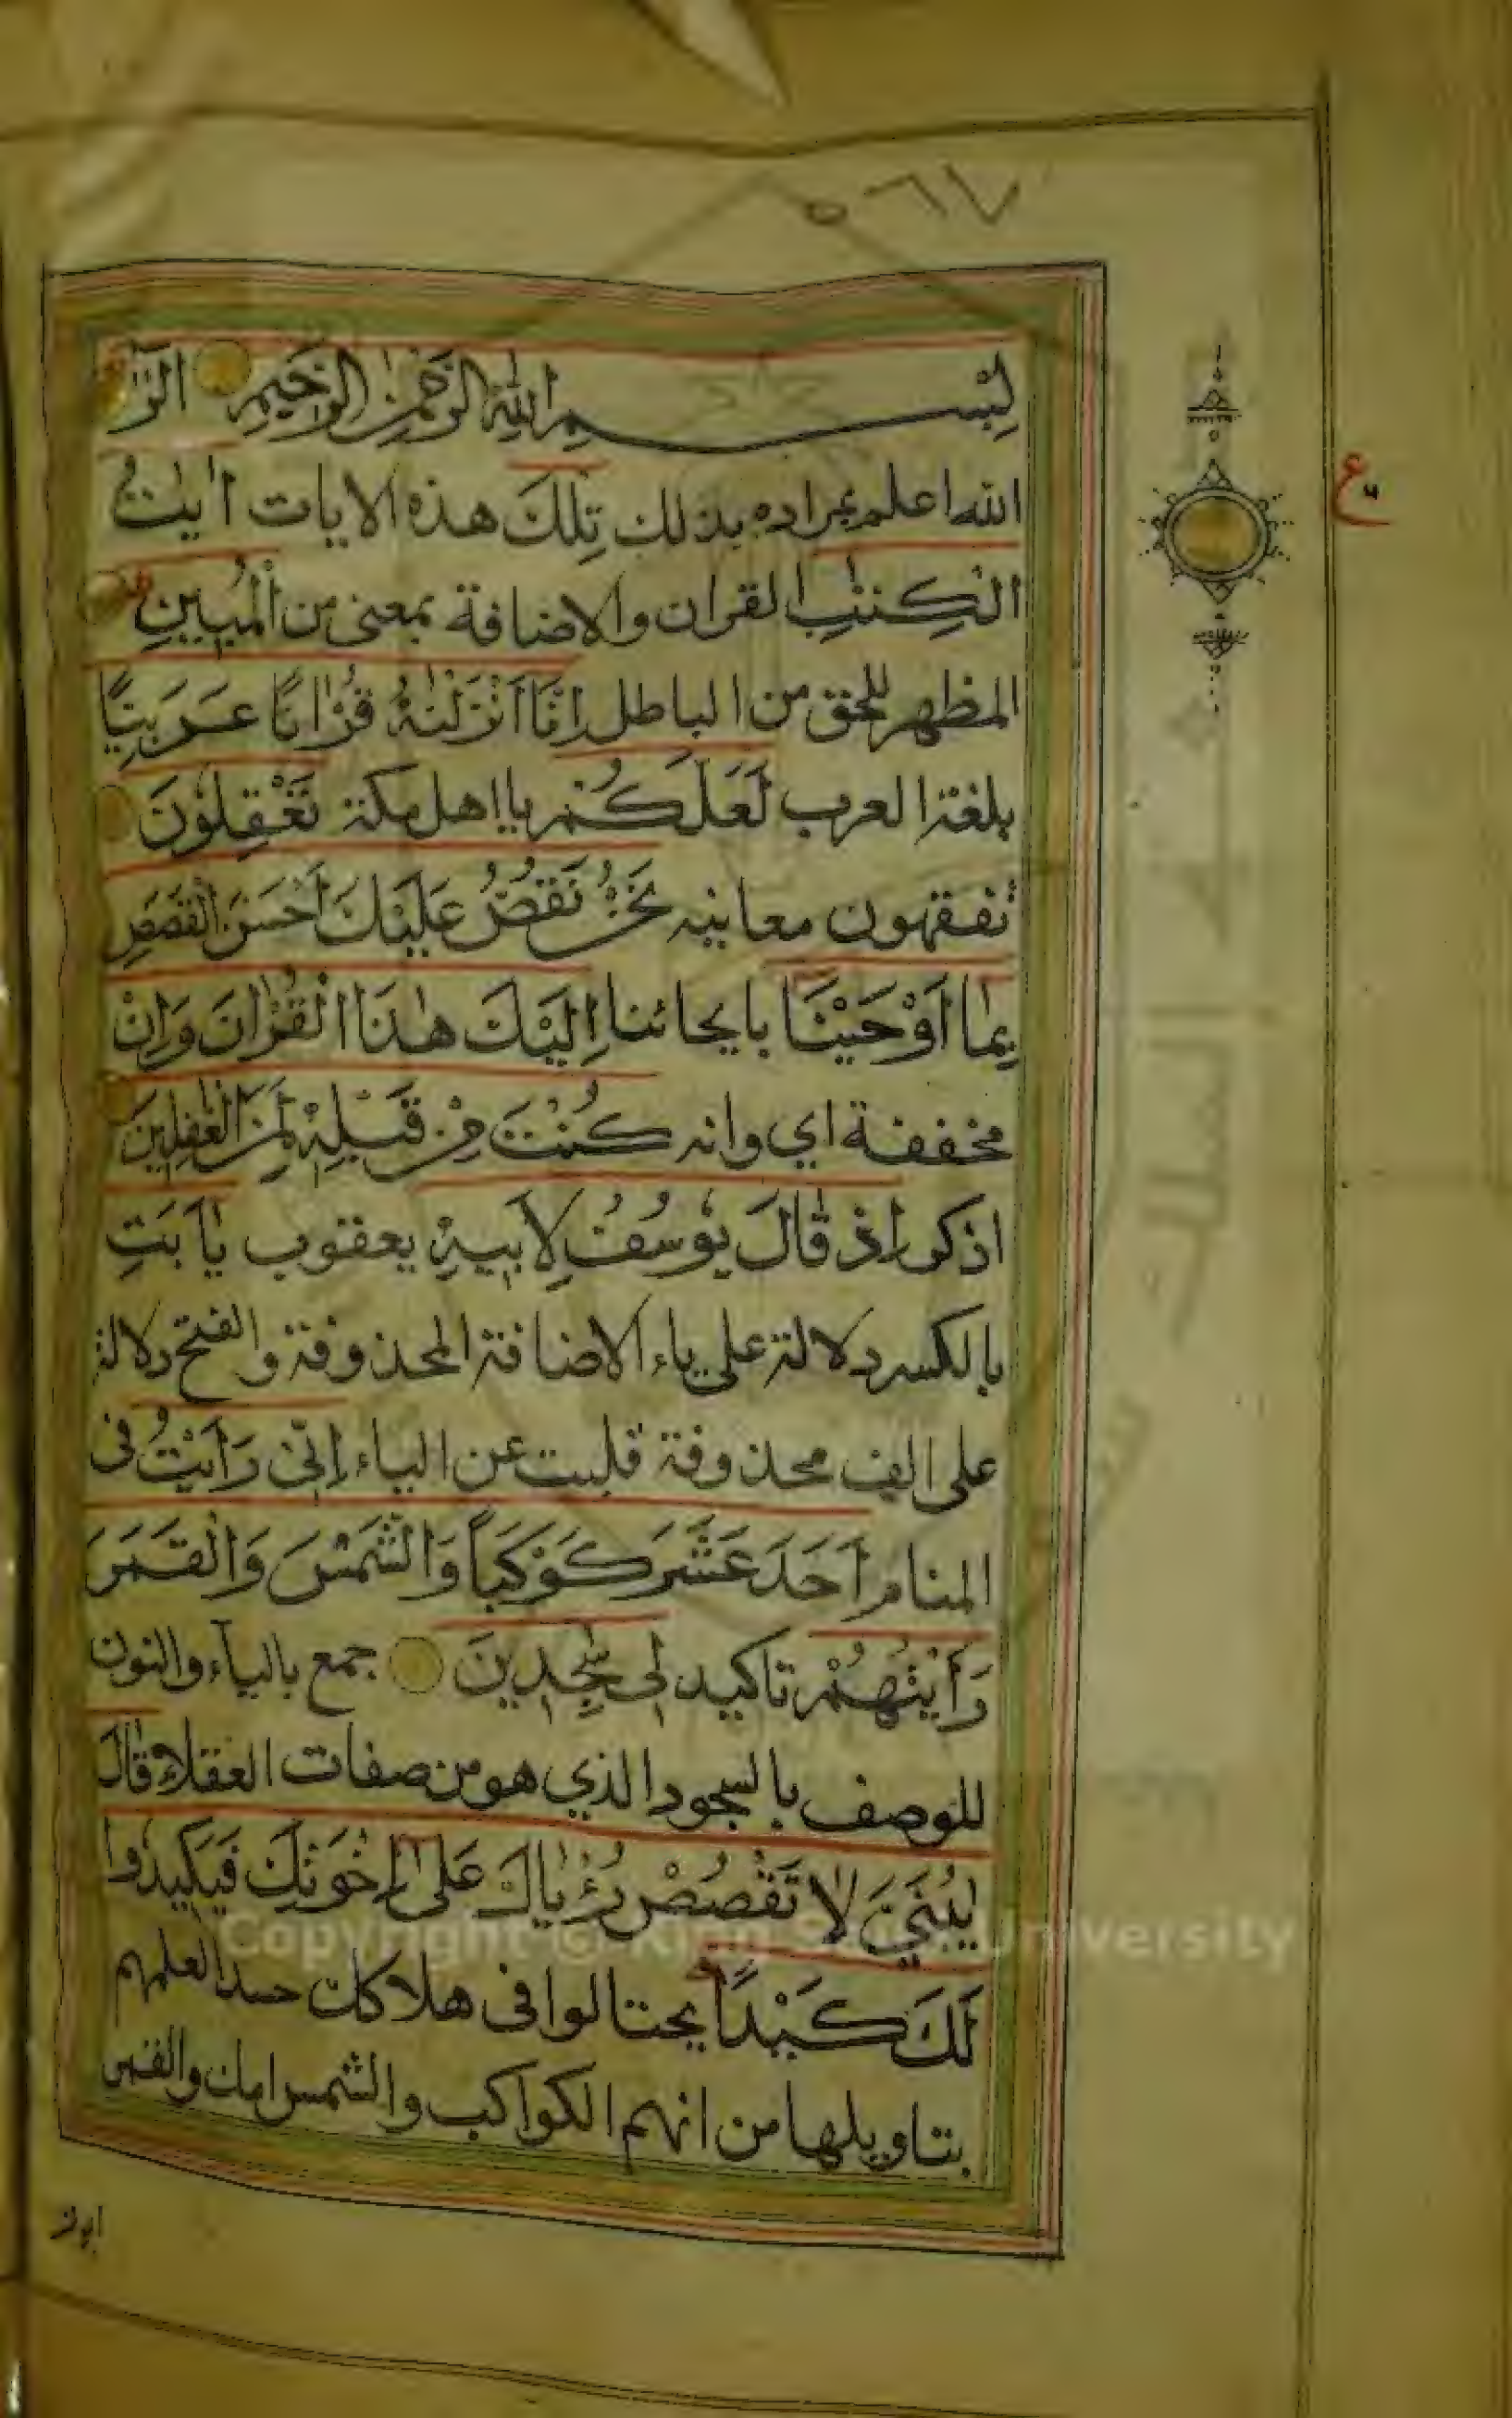 ٥٦٧
بِسْمِ اللهِ الرَّحْمٰنِ الرَّحِيمِ الٓرٰ
الله اعلم بمراده بذلك تِلْكَ هذه الايات اٰيٰتُ
الْكِتٰبِ القران والاضافة بمعنى من الْمُبِينِ
المظهر للحق من الباطل اِنَّا اَنْزَلْنٰهُ قُرْاٰنًا عَرَبِيًّا
بلغة العرب لَعَلَّكُمْ يا اهل مكة تَعْقِلُوْنَ
تفقهون معانيه نَحْنُ نَقُصُّ عَلَيْكَ اَحْسَنَ الْقَصَصِ
بِمَا اَوْحَيْنَا بايحائنا اِلَيْكَ هٰذَا الْقُرْاٰنَ وَاِنْ
مخففة اي وانه كُنْتَ مِنْ قَبْلِهٖ لَمِنَ الْغٰفِلِيْنَ
اذكر اِذْ قَالَ يُوْسُفُ لِاَبِيْهِ يعقوب يٰٓاَبَتِ
بالكسر دلالة على ياء الاضافة المحذوفة والفتح دلالة
على الف محذوفة قلبت عن الياء اِنِّيْ رَاَيْتُ فى
المنام اَحَدَ عَشَرَ كَوْكَبًا وَالشَّمْسَ وَالْقَمَرَ
رَاَيْتُهُمْ تاكيد لِيْ سٰجِدِيْنَ جمع بالياء والنون
للوصف بالسجود الذي هو من صفات العقلاء قَالَ
يٰبُنَيَّ لَا تَقْصُصْ رُءْيَاكَ عَلٰٓى اِخْوَتِكَ فَيَكِيْدُوْا
لَكَ كَيْدًا يحتالوا فى هلاكك حسدا لعلمهم
بتاويلها من انهم الكواكب والشمس امك والقمر
ابوك
ع
Copyright © King Saud University